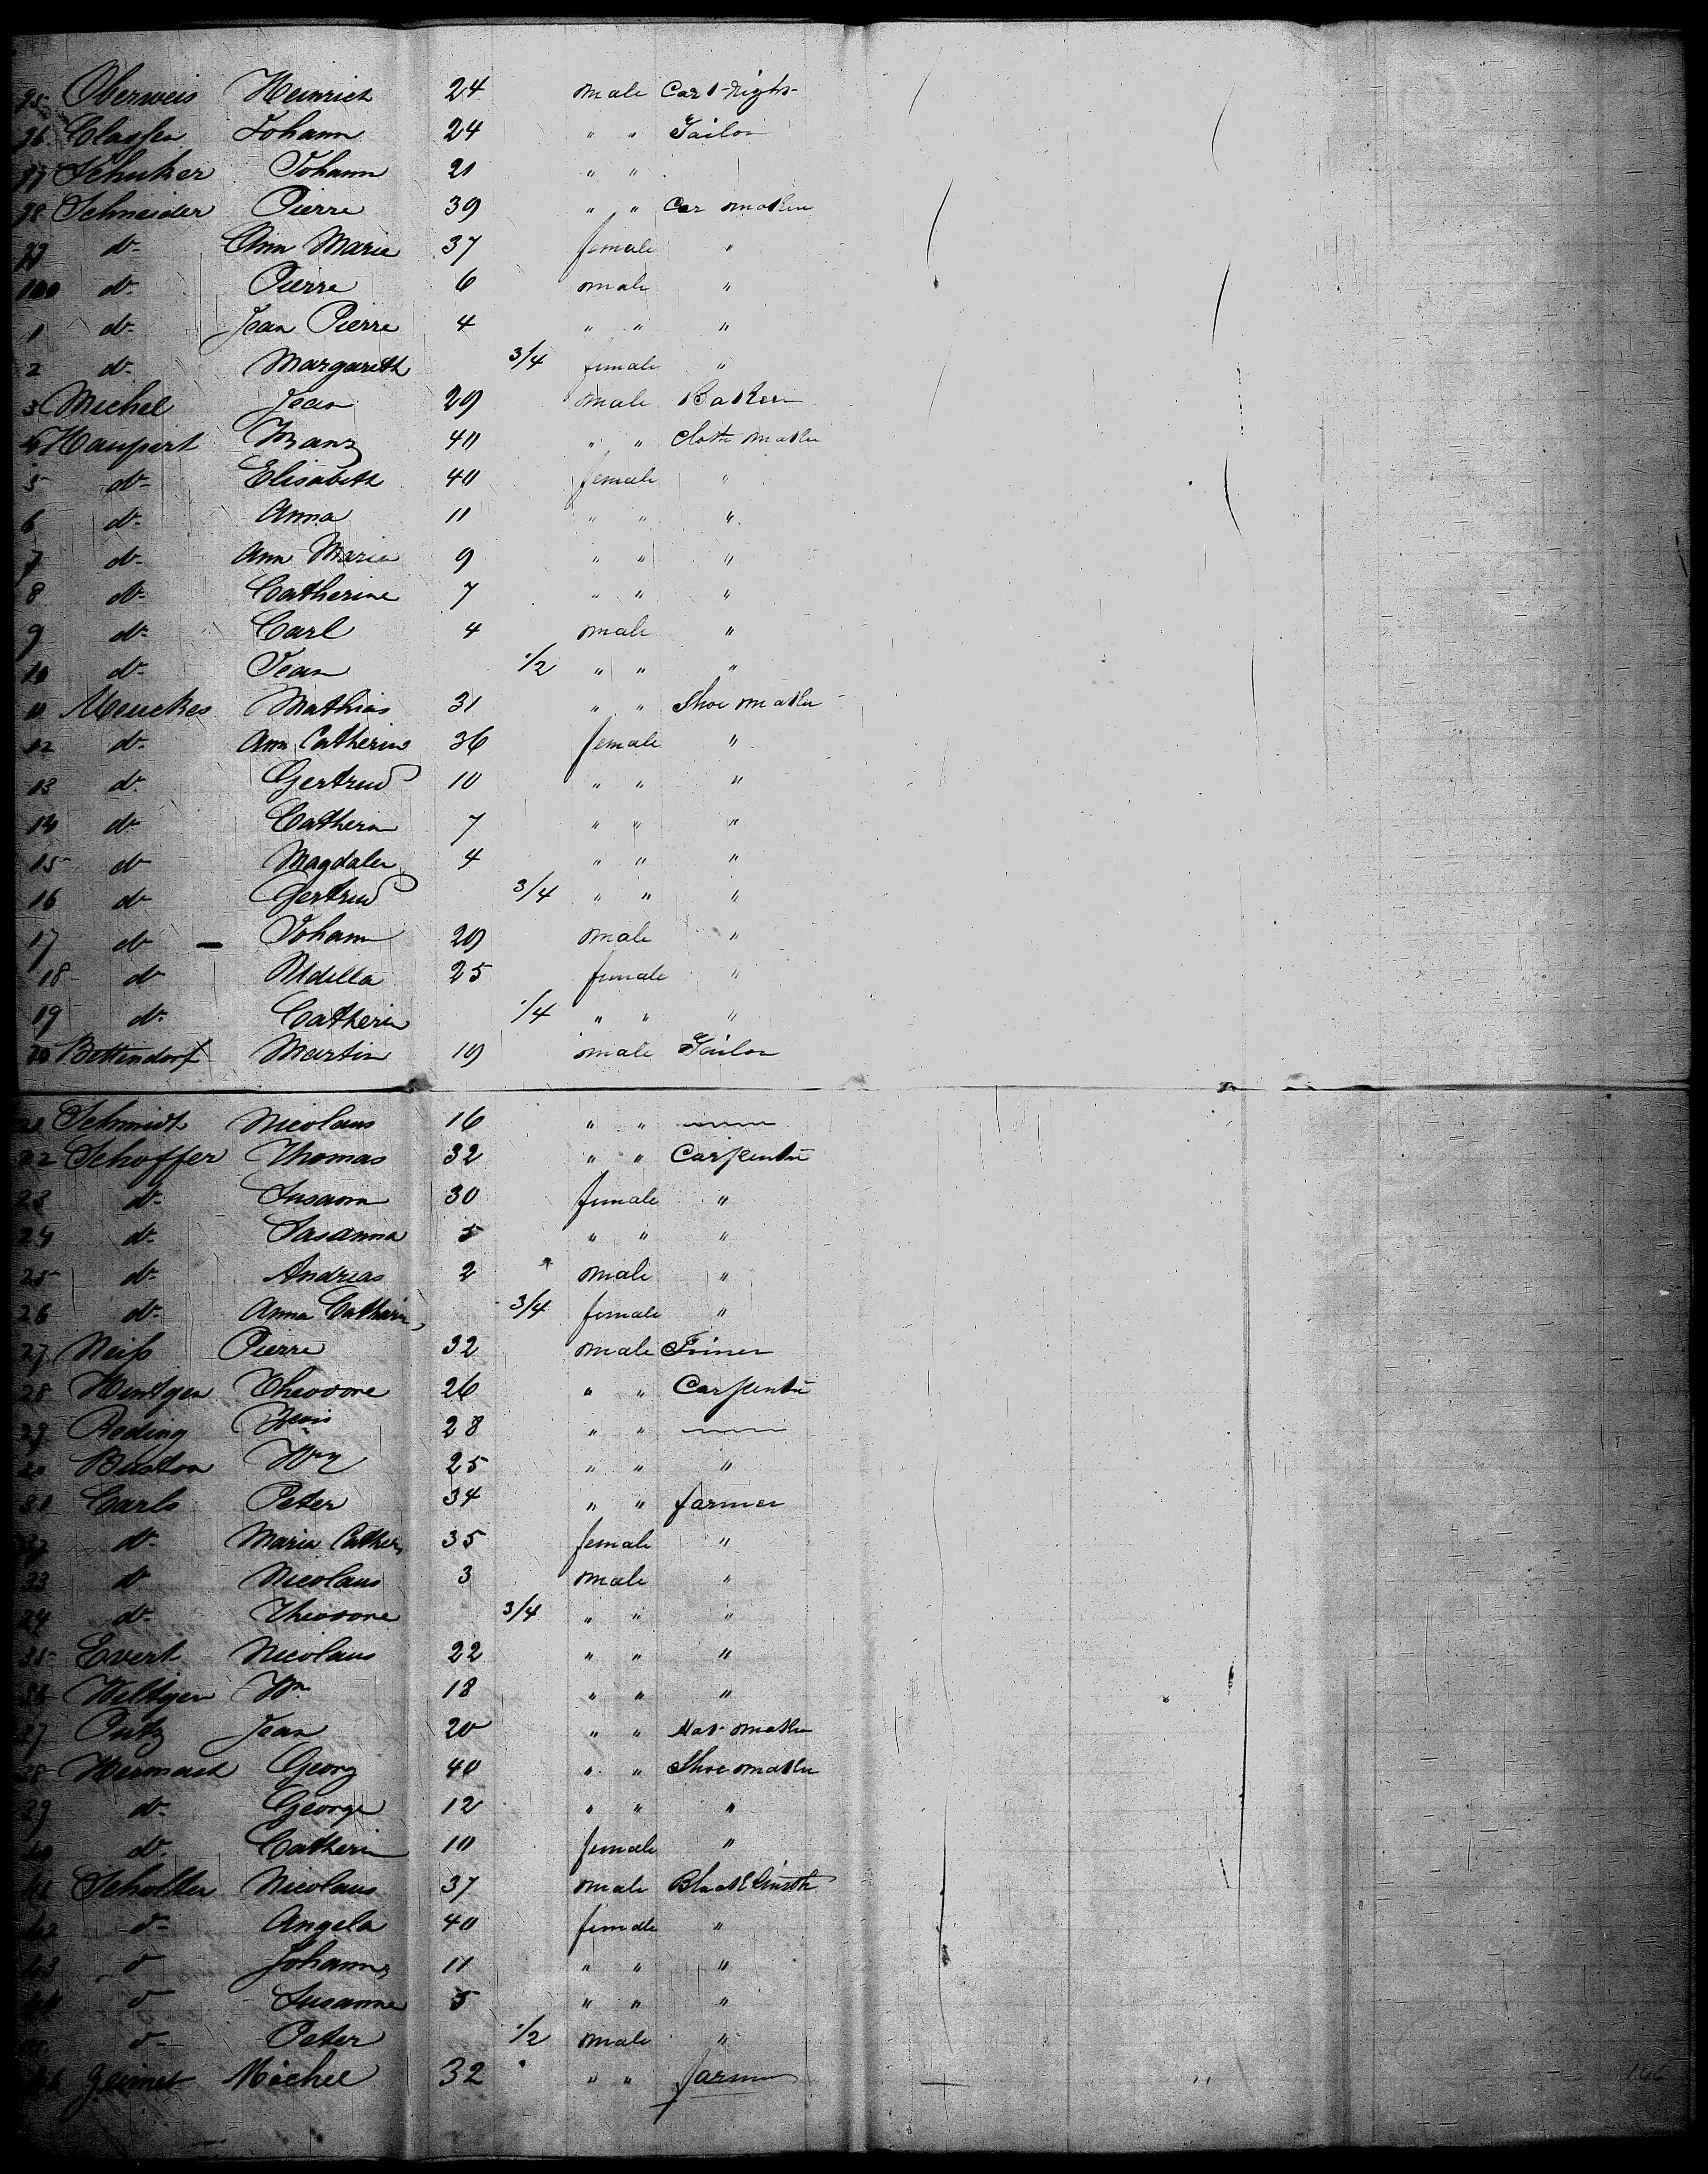 95 Oberweis Heinrich 24 male Cartright
96 Classen Johann 24 " " Tailor
97 Schuker Johann 21 " "
98 Schneider Pierre 39 " " Car maker
99 do Ann Marie 37 female "
100 do Pierre 6 male "
1 do Jean Pierre 4 " " "
2 do Margareth 3/4 female "
3 Michel Jean 29 male Baker
4 Haupert Franz 40 " " Cloth maker
5 do Elisabeth 40 female "
6 do Anna 11 " " "
7 do Ann Maria 9 " " "
8 do Catherine 7 " " "
9 do Carl 4 male "
10 do Jean 1/2 " " "
11 Meuckes Mathias 31 " " Shoe maker
12 do Ann Catherin 36 female "
13 do Gertrud 10 " " "
14 do Catherin 7 " " "
15 do Magdalen 4 " " "
16 do Gertrud 3/4 " " "
17 do Johann 29 male "
18 do 25 female "
19 do Catherin 1/4 " " "
20 Bettendorf Martin 19 male Tailor
21 Schmidt Nicolaus 16 " "
22 Schoffer Thomas 32 " " Carpenter
23 do Susann 30 female "
24 do Susanna 5 " " "
25 do Andreas 2 male "
26 do Anna Catharin 3/4 female "
27 Neiß Pierre 32 male Joiner
28 Hentgen Theodore 26 " " Carpenter
29 Reding 28 " "
30 Buston Wm 25 " " "
31 Carls Peter 34 " " farmer
32 do Maria Cather 35 female "
33 do Nicolaus 3 male "
34 do Theodore 3/4 " " "
35 Evert Nicolaus 22 " " "
36 Wiltgen Wm 18 " " "
37 Putz Jean 20 " " Hat maker
38 Georg 40 " " Shoe maker
39 do George 12 " " "
40 do Catherin 10 female "
41 Scholler Nicolaus 37 male Blacksmith
42 do Angela 40 female "
43 do Johanna 11 " " "
44 do Susanna 5 " " "
45 do Peter 1/2 male "
46 Michel 32 " " farmer